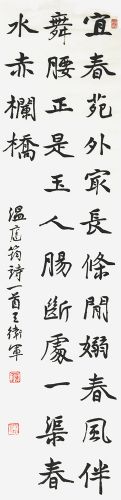 宜春苑外㝡長條閒嫋春風伴
舞腰正是玉人腸斷處一渠春
水赤欄橋
溫庭筠詩一首王衛軍